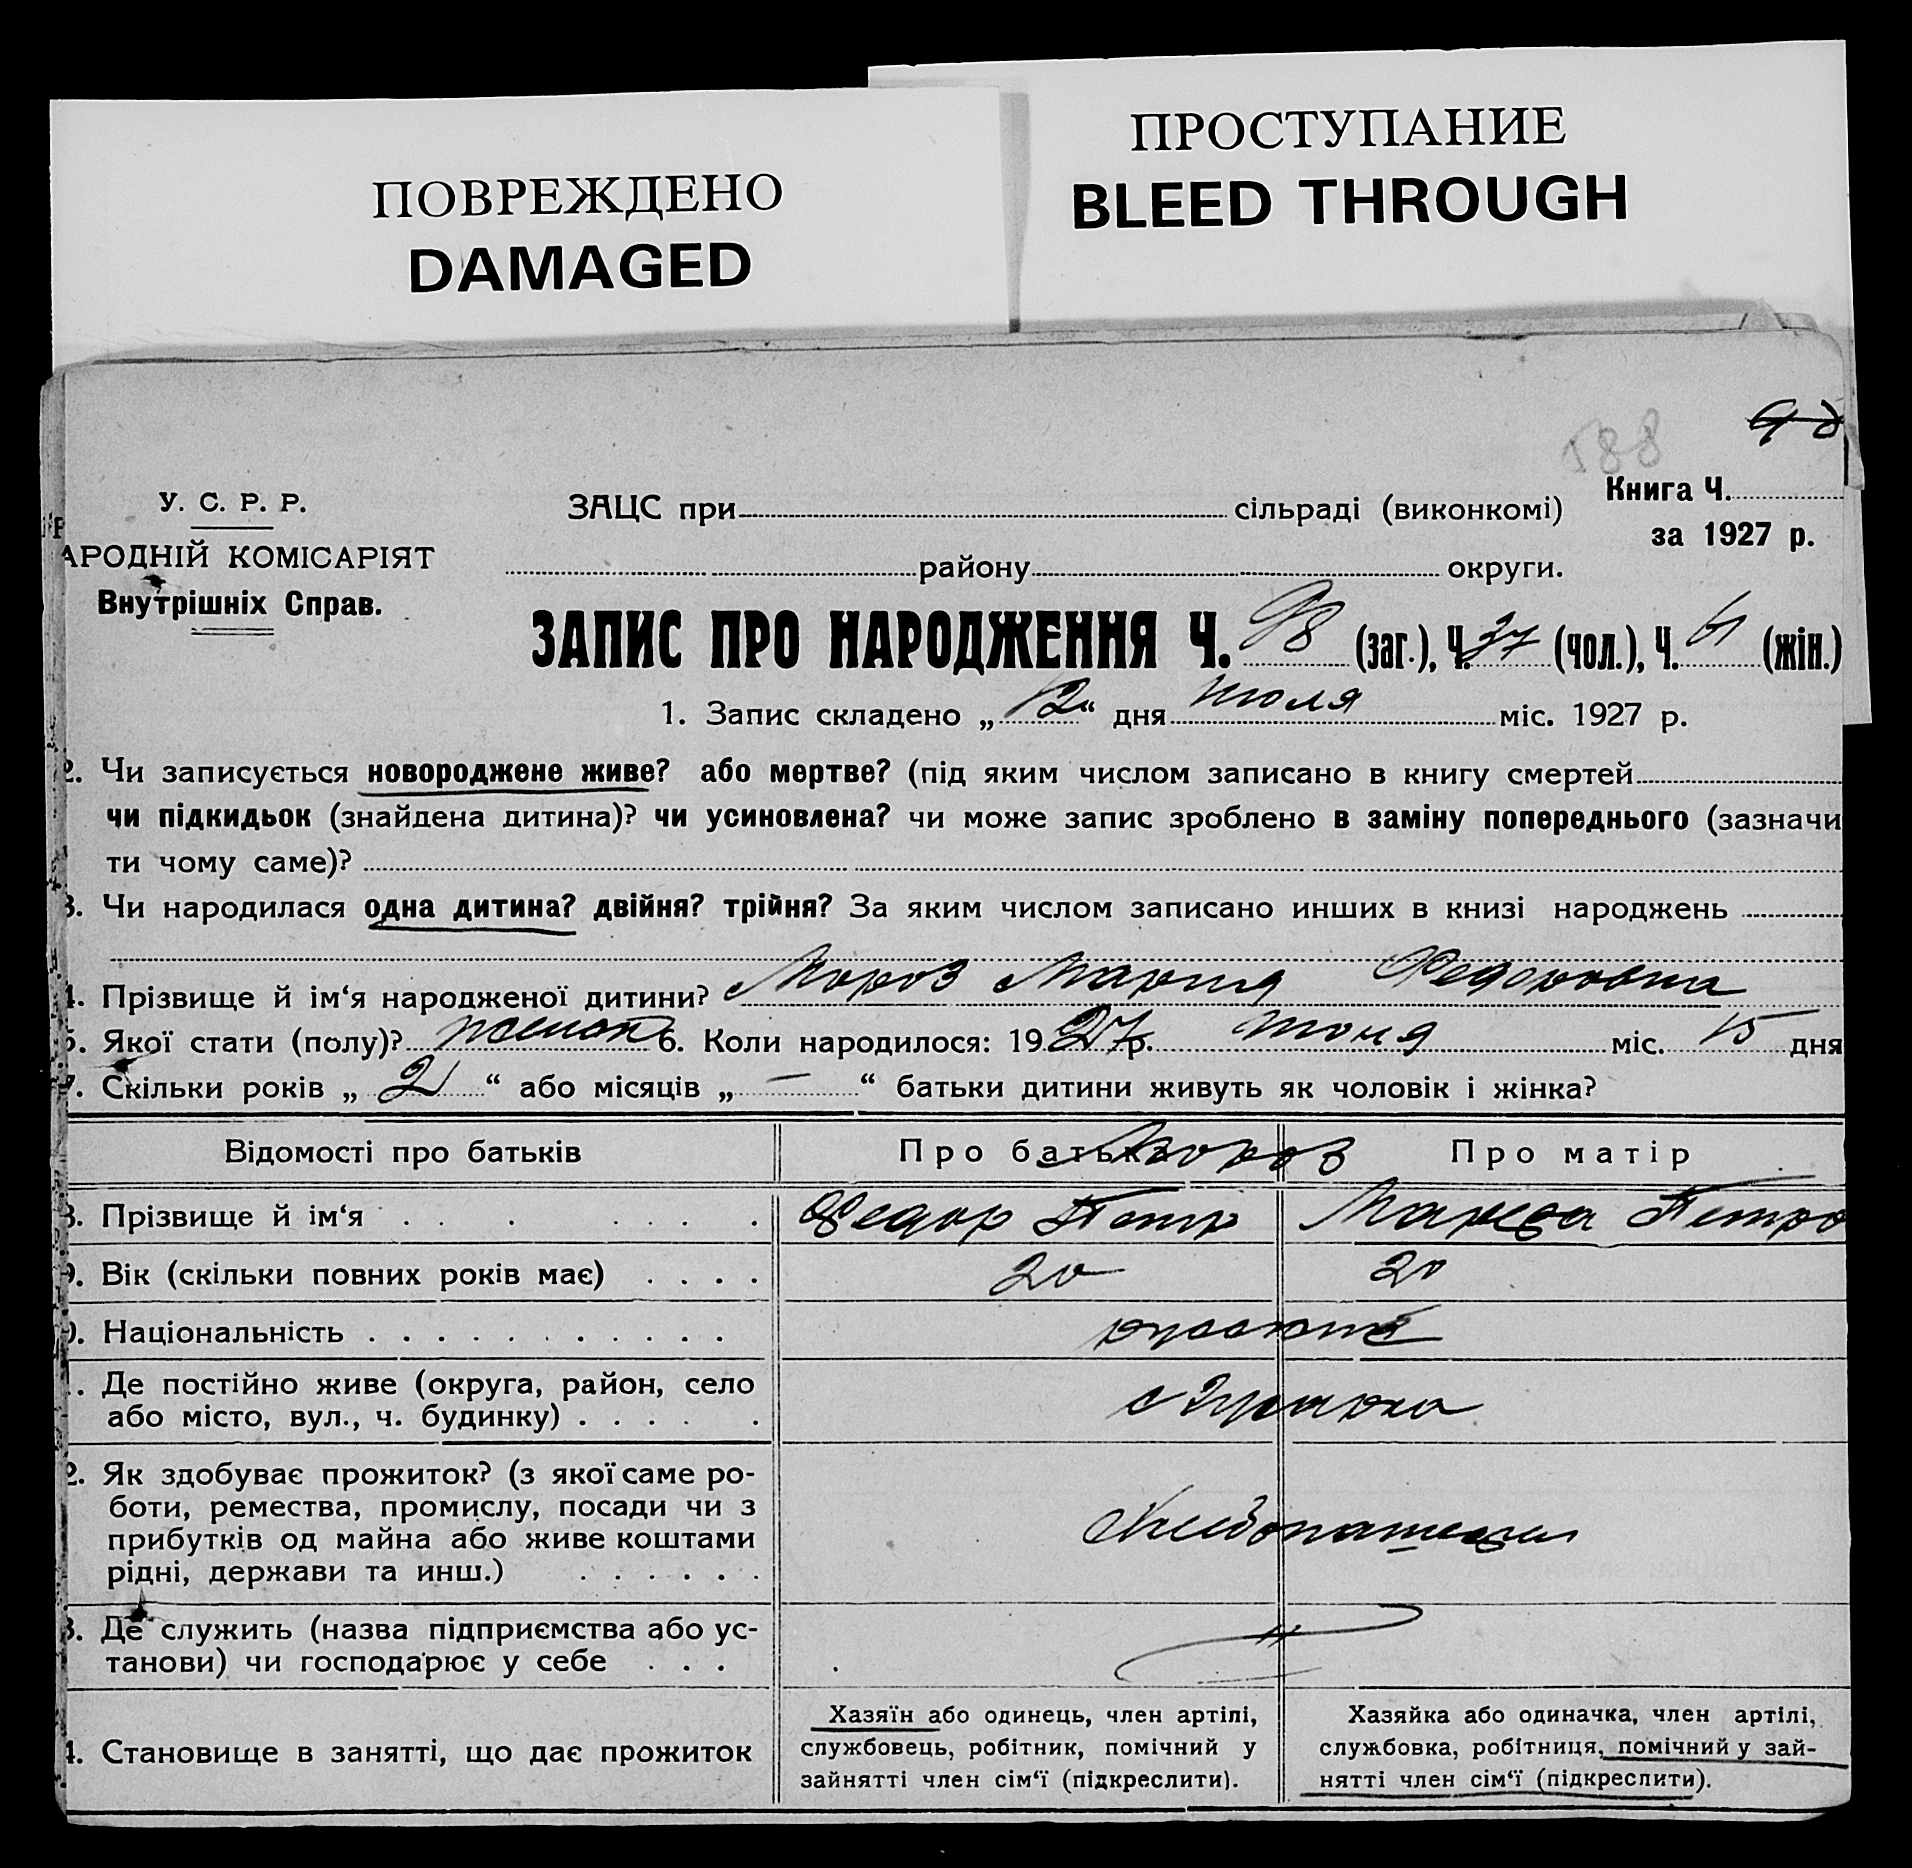 ПОВРЕЖДЕНО
DAMAGED
ПРОСТУПАНИЕ
BLEED THROUGH
588
У. С. Р. Р.
АРОДНІЙ КОМІСАРІЯТ
Внутрішніх Справ.
ЗАЦС при сільраді (виконкомі)
району округи.
Книга Ч.
за 1927 р.
ЗАПИС ПРО НАРОДЖЕННЯ Ч. 98 (заг.), Ч. 37 (чол.), Ч. 61 (жін.)
1. Запис складено „ 12 “ дня июля міс. 1927 р.
2. Чи записується новороджене живе? або мертве? (під яким числом записано в книгу смертей
чи підкидьок (знайдена дитина)? чи усиновлена? чи може запис зроблено в заміну попереднього (зазначи
ти чому саме)?
3. Чи народилася одна дитина? двійня? трійня? За яким числом записано инших в книзі народжень
4. Прізвище й ім‘я народженої дитини? Мороз Мария Федоровна
5. Якої стати (полу)? женск 6. Коли народилося: 1927 р. июня міс. 15 дня
7. Скільки років „ 2 “ або місяців „ — “ батьки дитини живуть як чоловік і жінка?
Відомості про батьків Про батька Про матір
Мороз
8. Прізвище й ім‘я Федор Петр Петро
9. Вік (скільки повних років має) 20 20
0. Національність
. Де постійно живе (округа, район, село
або місто, вул., ч. будинку)
2. Як здобуває прожиток? (з якої саме ро-
боти, ремества, промислу, посади чи з
прибутків од майна або живе коштами
рідні, держави та инш.)
3. Де служить (назва підприємства або ус-
танови) чи господарює у себе
4. Становище в занятті, що дає прожиток
Хазяїн або одинець, член артілі,
службовець, робітник, помічний у
зайнятті член сім‘ї (підкреслити).
Хазяйка або одиначка, член артілі,
службовка, робітниця, помічний у зай-
нятті член сім‘ї (підкреслити).